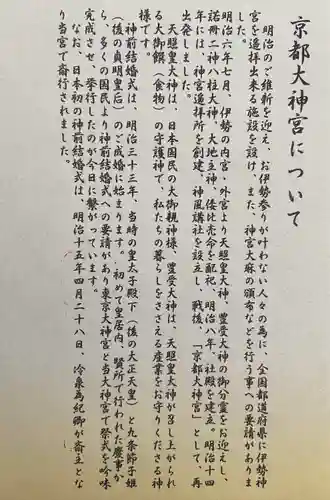 京都大神宮について
明治のご維新を迎え、お伊勢参りが叶わない人々の為に、全国都道府県に伊勢神
宮を遥拝出来る施設を設け、また、神宮大麻の頒布などを行う事への要請がありま
した。
明治六年七月、伊勢の内宮・外宮より天照皇大神、豊受大神の御分霊をお迎えし、
諾冊二神八柱大神、大地主神、倭比売命を配祀、明治八年、社殿を建立。明治十四
年には、神宮遥拝所を創建、神風講社を設立し、戦後、「京都大神宮」として、再
出発しました。
天照皇大神は、日本国民の大御親神様、豊受大神は、天照皇大神が召し上がられ
る大御饌（食物）の守護神で、私たちの暮らしをささえる産業をお守りくださる神
様です。
神前結婚式は、明治三十三年、当時の皇太子殿下（後の大正天皇）と九条節子姫
（後の貞明皇后）のご成婚に始まります。初めて皇居内、賢所で行われた慶事か
ら、多くの国民より神前結婚式への要請があり東京大神宮と当大神宮で祭式を吟味
完成させ、挙行したのが今日に繋がっています。
なお、日本初の神前結婚式は、明治十五年四月二十八日、冷泉為紀卿が斎主とな
り当宮で斎行されました。